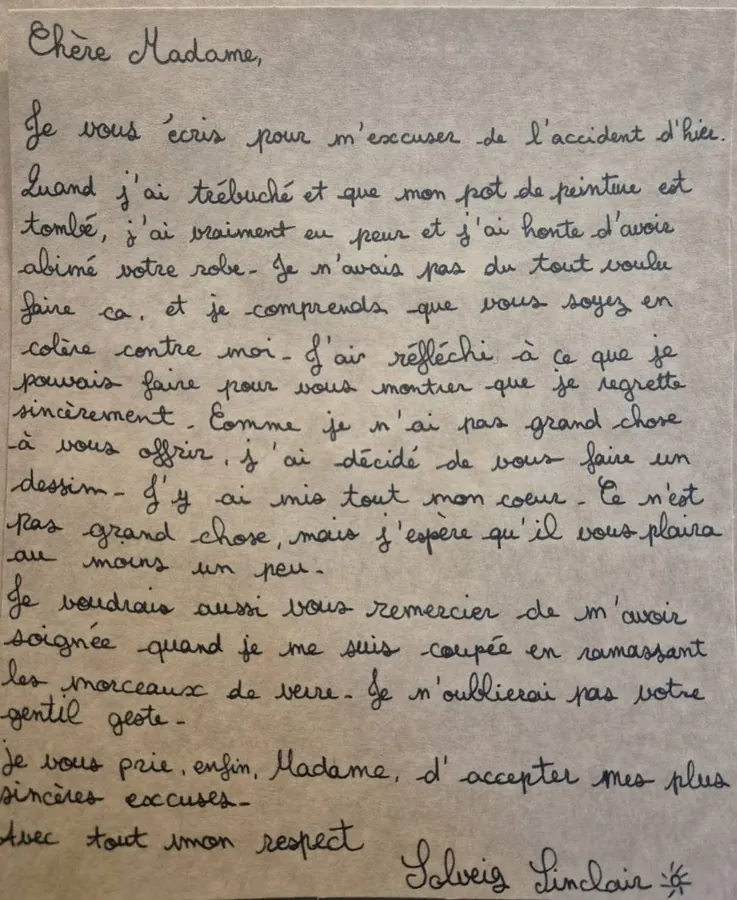 Chère Madame,
Je vous écris pour m'exccuser de l'accident d'hier.
Quand j'ai trébuché et que mon pot de peinture est
tombé, j'ai vraiment eu peur et j'ai honte d'avoir
abimé votre robe. Je n'avais pas du tout voulu
faire ca, et je comprends que vous soyez en
colère contre moi. J'ai réfléchi à ce que je
pouvais faire pour vous montrer que je regrette
sincèrement. Comme je n'ai pas grand chose
à vous offrir, j'ai décidé de vous faire un
dessin. J'y ai mis tout mon coeur. Ce n'est
pas grand chose, mais j'espère qu'il vous plaira
au moins un peu.
Je voudrais aussi vous remercier de m'avoir
soignée quand je me suis coupée en ramassant
les morceaux de verre. Je n'oublierai pas votre
gentil geste.
je vous prie, enfin, Madame, d'accepter mes plus
sincères exccuses.
Avec tout mon respect
Solveig Sinclair